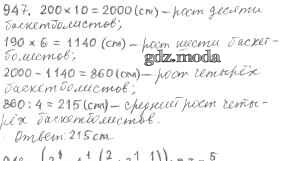 947. 200×10=2000 (см) – рост десяти
баскетболистов;
190 × 6 = 1140 (см) – рост шести баскет-
болистов;
gdz.moda
2000 - 1140 = 860 (см) – рост четырёх
баскетболистов;
860 : 4 = 215 (см) – средний рост четы-
рёх баскетболистов.
Ответ: 215 см.